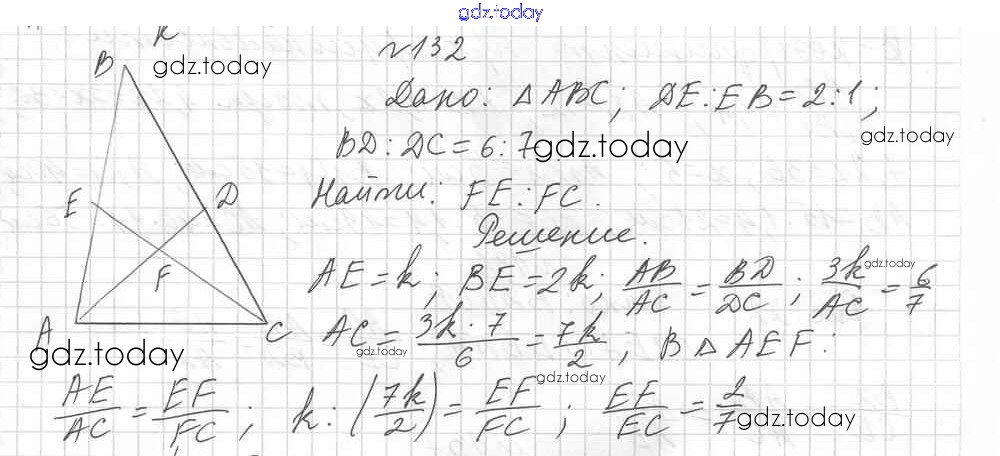 gdz.today
к
№132
B
gdz.today
Дано: △ABC; DE:EB=2:1;
gdz.today
BD:DC=6:7
gdz.today
E
D
Найти: FE:FC.
Решение.
F
AE=k; BE=2k; AB/AC = BD/DC; 3k/AC = 6/7
gdz.today
A
C
AC = 3k·7/6 = 7k/2; В △AEF:
gdz.today
gdz.today
gdz.today
AE/AC = EF/FC; k:(7k/2) = EF/FC; EF/EC = 2/7
gdz.today